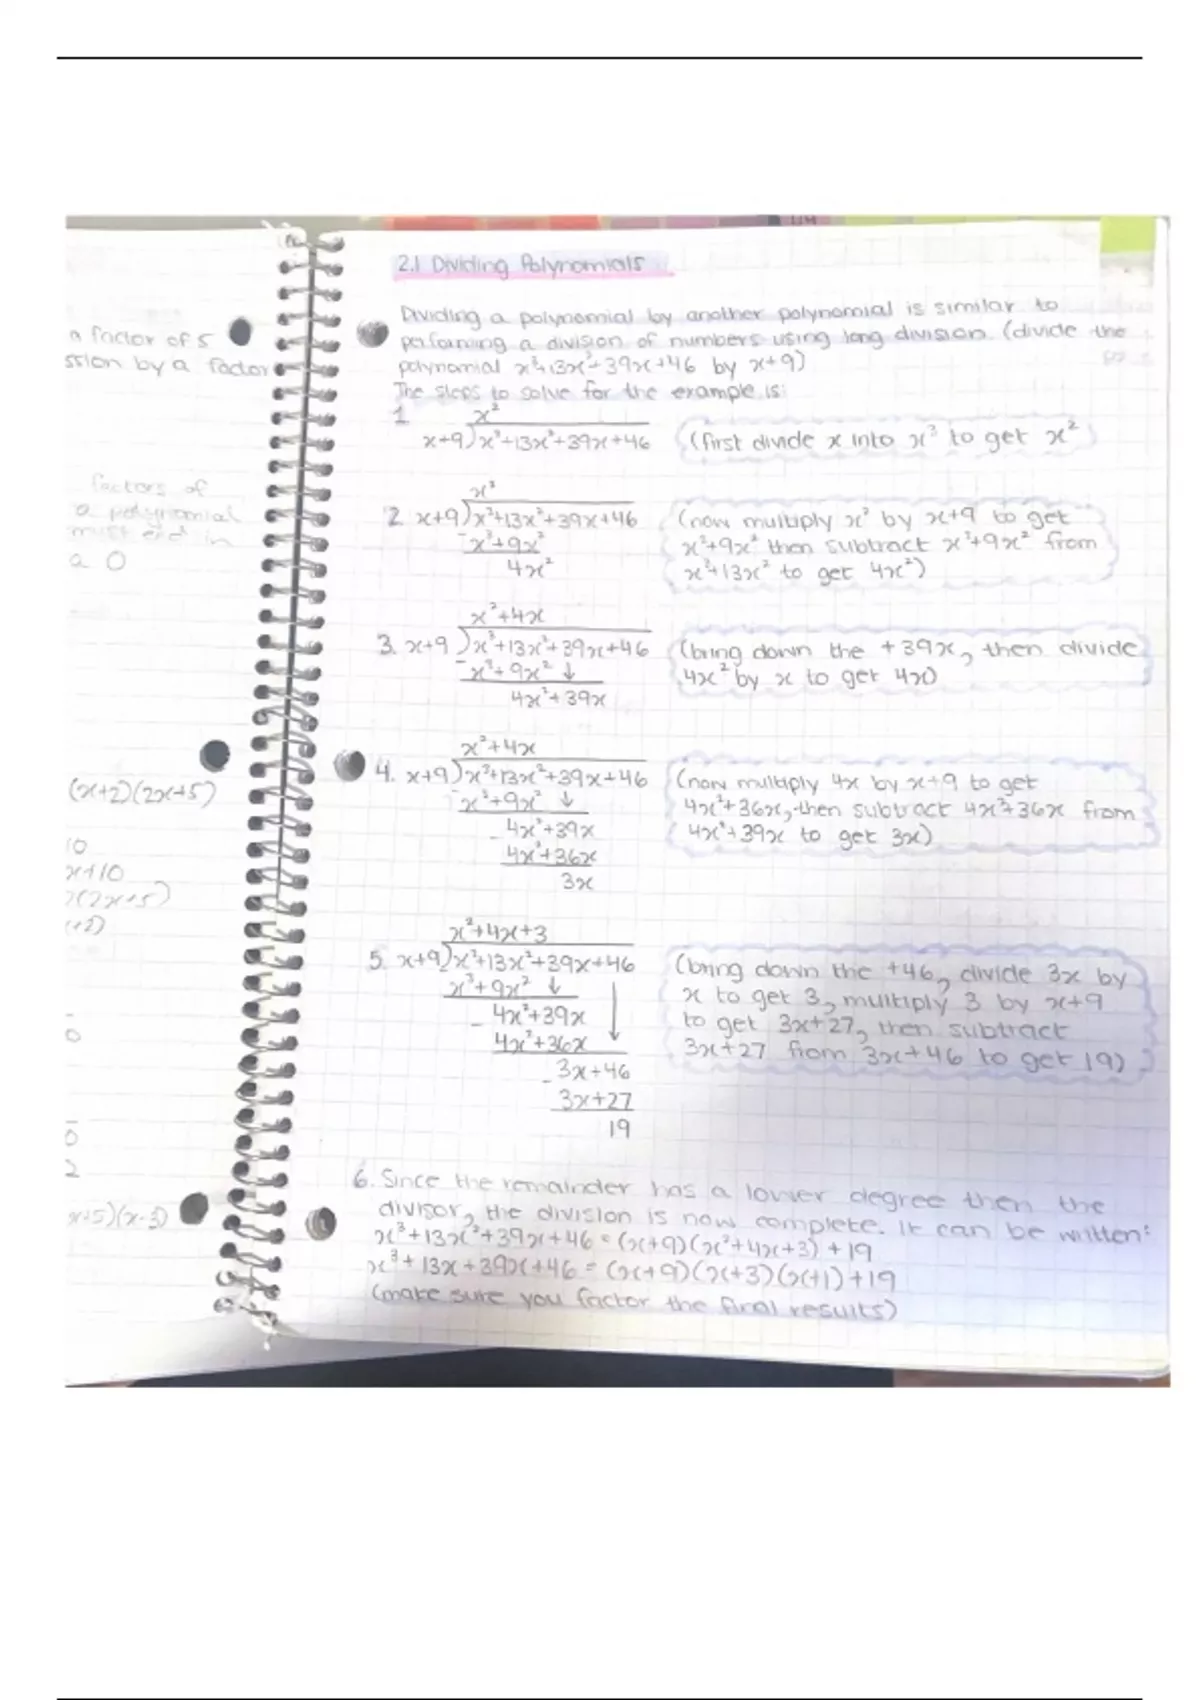 a factor of 5
ssion by a factor
factors of
a polynomial
must end in
a 0
(x+2)(2x+5)
10
x+10
x(2x+5)
x+2)
0
0
2
x+5)(x-3)
2.1 Dividing Polynomials
Dividing a polynomial by another polynomial is similar to
performing a division of numbers using long division. (divide the
polynomial x³+13x²+39x+46 by x+9)
The steps to solve for the example is:
1. x²
x+9)x³+13x²+39x+46 (first divide x into x³ to get x²)
x²
2. x+9)x³+13x²+39x+46 (now multiply x² by x+9 to get
-x³+9x² x³+9x² then subtract x³+9x² from
4x² x³+13x² to get 4x²)
x²+4x
3. x+9)x³+13x²+39x+46 (bring down the +39x, then divide
-x³+9x² ↓ 4x² by x to get 4x)
4x²+39x
x²+4x
4. x+9)x³+13x²+39x+46 (now multiply 4x by x+9 to get
-x³+9x² ↓ 4x²+36x, then subtract 4x²+36x from
-4x²+39x 4x²+39x to get 3x)
4x²+36x
3x
x²+4x+3
5. x+9)x³+13x²+39x+46 (bring down the +46, divide 3x by
x³+9x² ↓ x to get 3, multiply 3 by x+9
-4x²+39x to get 3x+27, then subtract
4x²+36x ↓ 3x+27 from 3x+46 to get 19)
-3x+46
3x+27
19
6. Since the remainder has a lower degree then the
divisor, the division is now complete. It can be written:
x³+13x²+39x+46=(x+9)(x²+4x+3)+19
x³+13x+39x+46=(x+9)(x+3)(x+1)+19
(make sure you factor the final results)